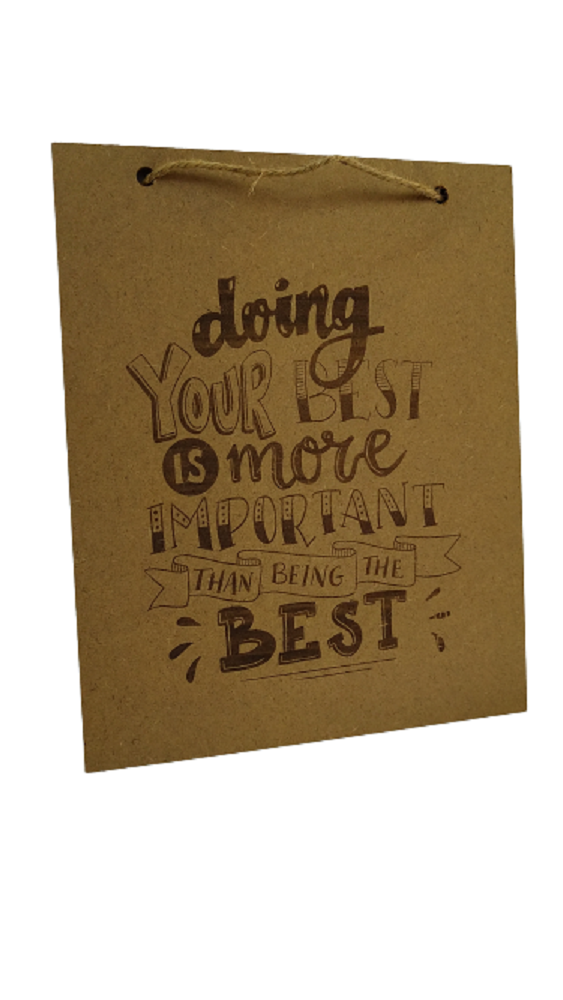 doing
YOUR BEST
IS more
IMPORTANT
THAN BEING THE
BEST